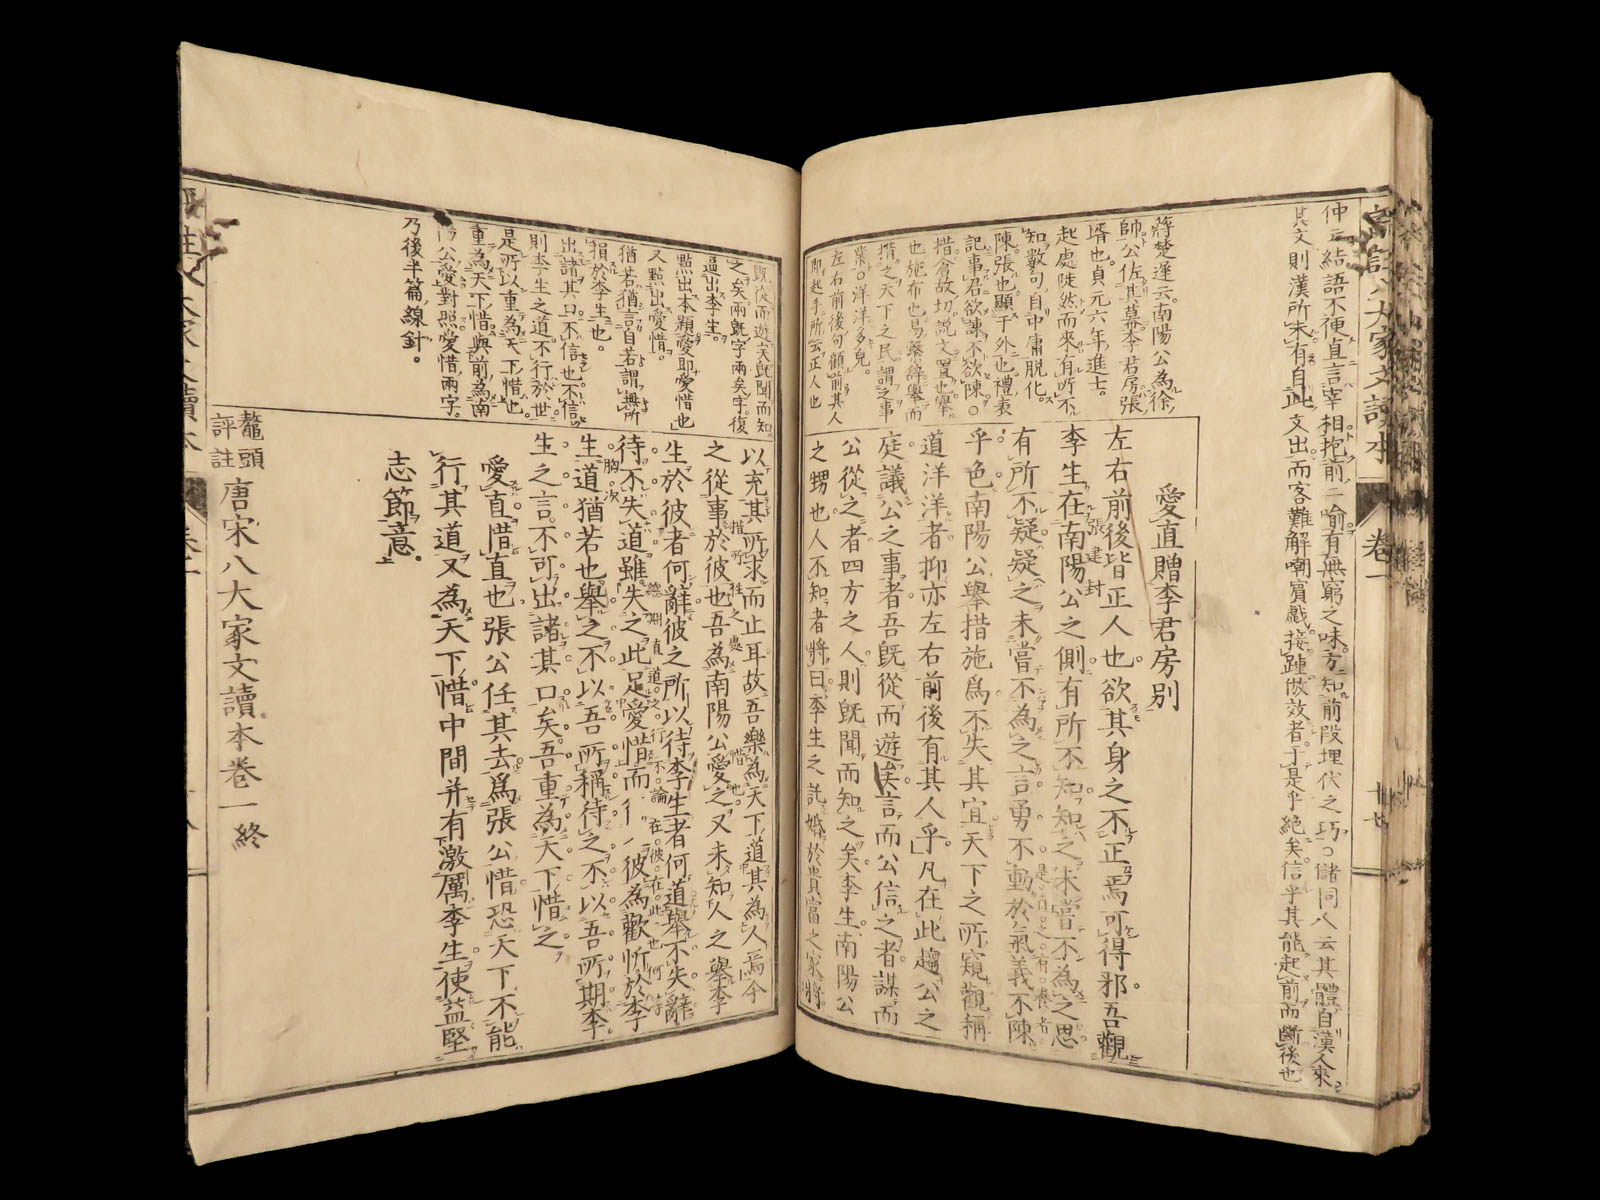 仲云結語不便直言宰相抱前二喻有無窮之味方知前段埋伏之巧○儲同人云其體自漢人來
其文則漢所未有自此文出而客難解嘲賓戲接踵倣效者于是乎絕矣信乎其能起前而斷後也
蔣楚遲云南陽公為徐
帥公佐其幕李君房張
壻也貞元六年進士
起處陡然而來有所不
知數句自中庸脫化
陳張也顯于外也禮表
記事君欲諫不欲陳○
措倉故切說文置也舉
也施布也易繫辭舉而
措之天下之民謂之事
業○洋洋多皃
左右前後句顧前其人
即起手所云正人也
愛直贈李君房别
左右前後皆正人也欲其身之不正焉可得邪吾觀
李生在南陽公之側有所不知知之未嘗不為之思
張建封
有所不疑疑之未嘗不為之言勇不動於氣義不陳
乎色南陽公舉措施為不失其宜天下之所窺觀稱
道洋洋者抑亦左右前後有其人乎凡在此趨公之
庭議公之事者吾既從而遊矣言而公信之者謀而
公從之者四方之人則既聞而知之矣李生南陽公
之甥也人不知者將曰李生之託婚於貴富之家將
既從而遊矣既聞而知
之矣兩既字兩矣字復
逼出李生
點出本題愛即愛惜也
又點出愛惜
猶若猶言自若謂無所
損於李生也
出諸其口不信也不信
則李生之道不行於世
是所以重為天下惜也
重為天下惜與前為南
陽公愛對照愛惜兩字
乃後半篇線針
以充其所求而止耳故吾樂為天下道其為人焉今
之從事於彼也吾為南陽公愛之又未知人之舉李
生於彼者何辭彼之所以待李生者何道舉不失辭
待不失道雖失之此足愛惜而得之彼為歡忻於李
生道猶若也舉之不以吾所稱待之不以吾所期李
胸次
生之言不可出諸其口矣吾重為天下惜之
愛直惜直也張公任其去為張公惜恐天下不能
行其道又為天下惜中間并有激厲李生使益堅
志節意
鼇頭
評註
唐宋八大家文讀本卷一終